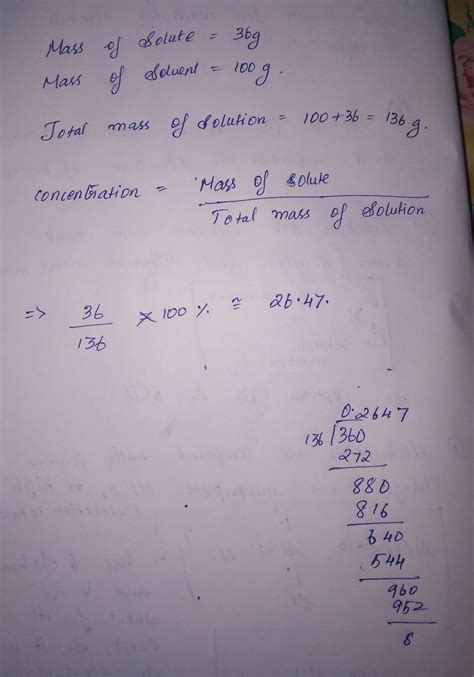 Mass of Solute = 36g
Mass of Solvent = 100 g.
Total mass of Solution = 100+36 = 136 g.
concentration = Mass of solute
Total mass of Solution
=> 36 × 100 % ≅ 26.47.
136
0.2647
136 360
272
880
816
640
544
960
952
8